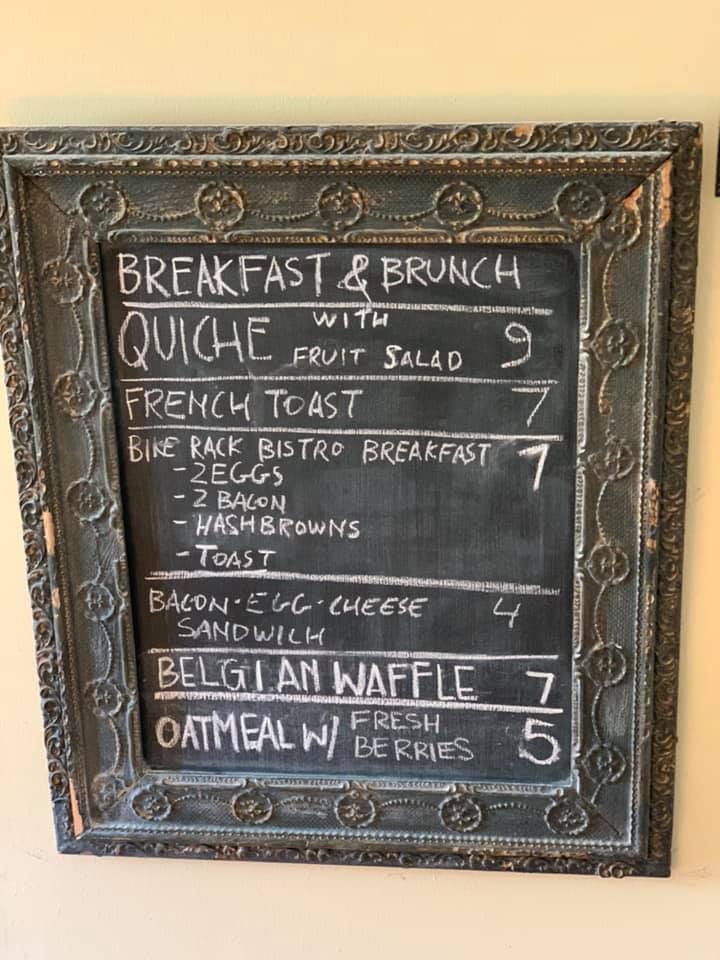 BREAKFAST & BRUNCH
QUICHE WITH FRUIT SALAD 9
FRENCH TOAST 7
BIKE RACK BISTRO BREAKFAST 7
- 2 EGGS
- 2 BACON
- HASHBROWNS
- TOAST
BACON-EGG-CHEESE 4
SANDWICH
BELGIAN WAFFLE 7
OATMEAL W/ FRESH BERRIES 5